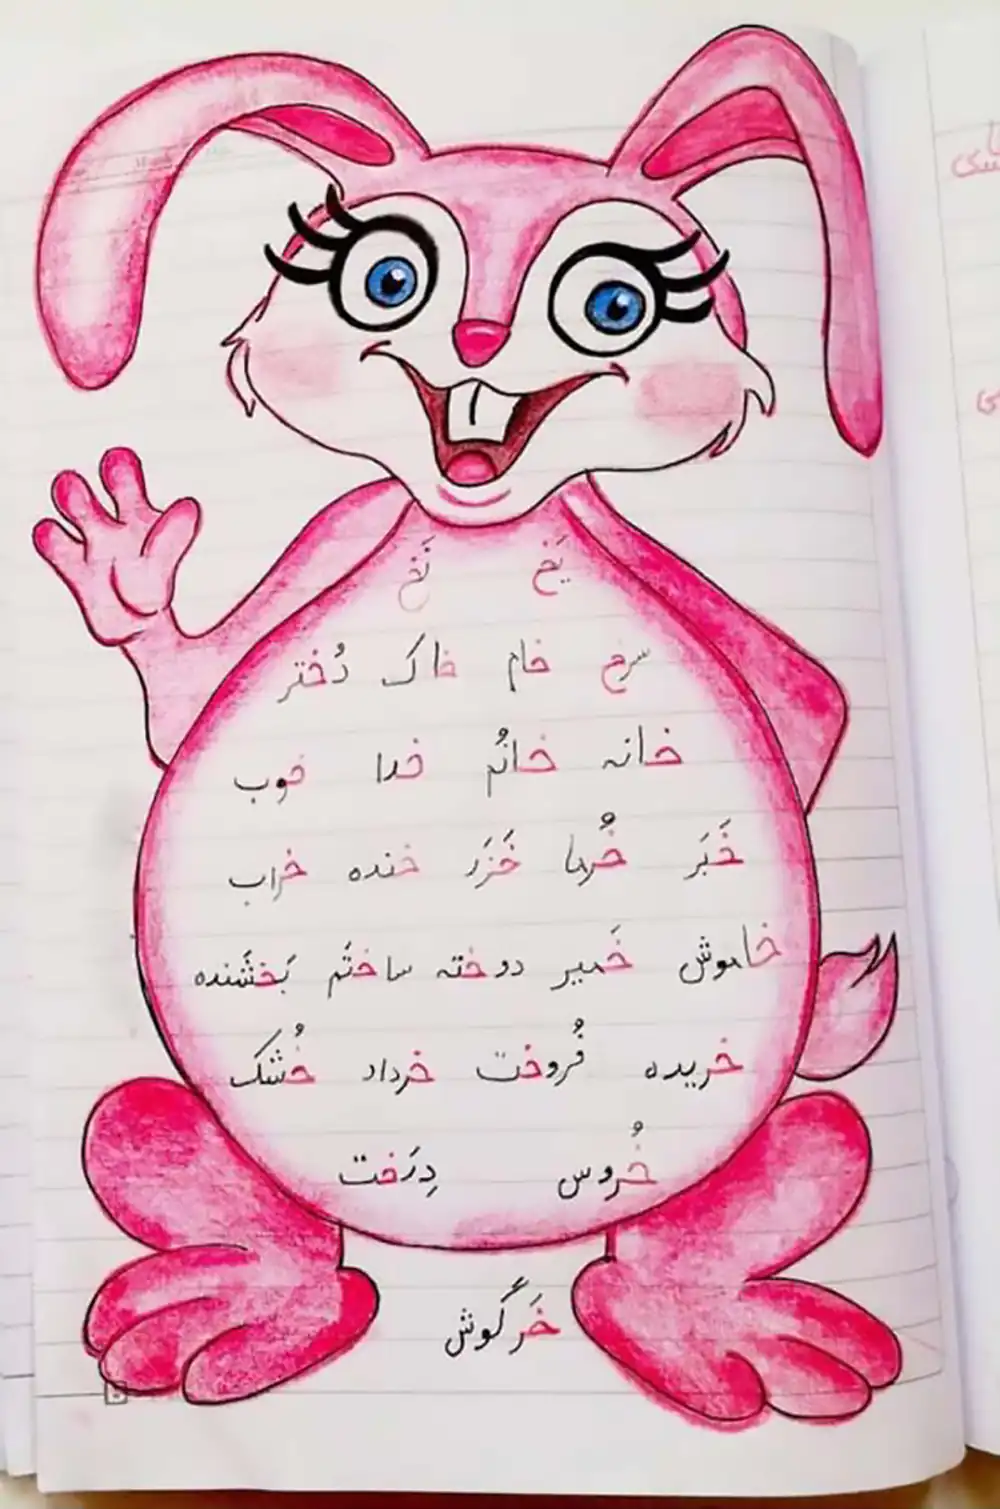 یَخ نَخ
سرخ خام خاک دُختر
خانه خانُم خدا خوب
خَبَر خُرما خَزَر خنده خراب
خاموش خَمیر دوخته ساختَم بَخشَنده
خریده فُروخت خرداد خُشک
خُروس دِرَخت
خَرگوش